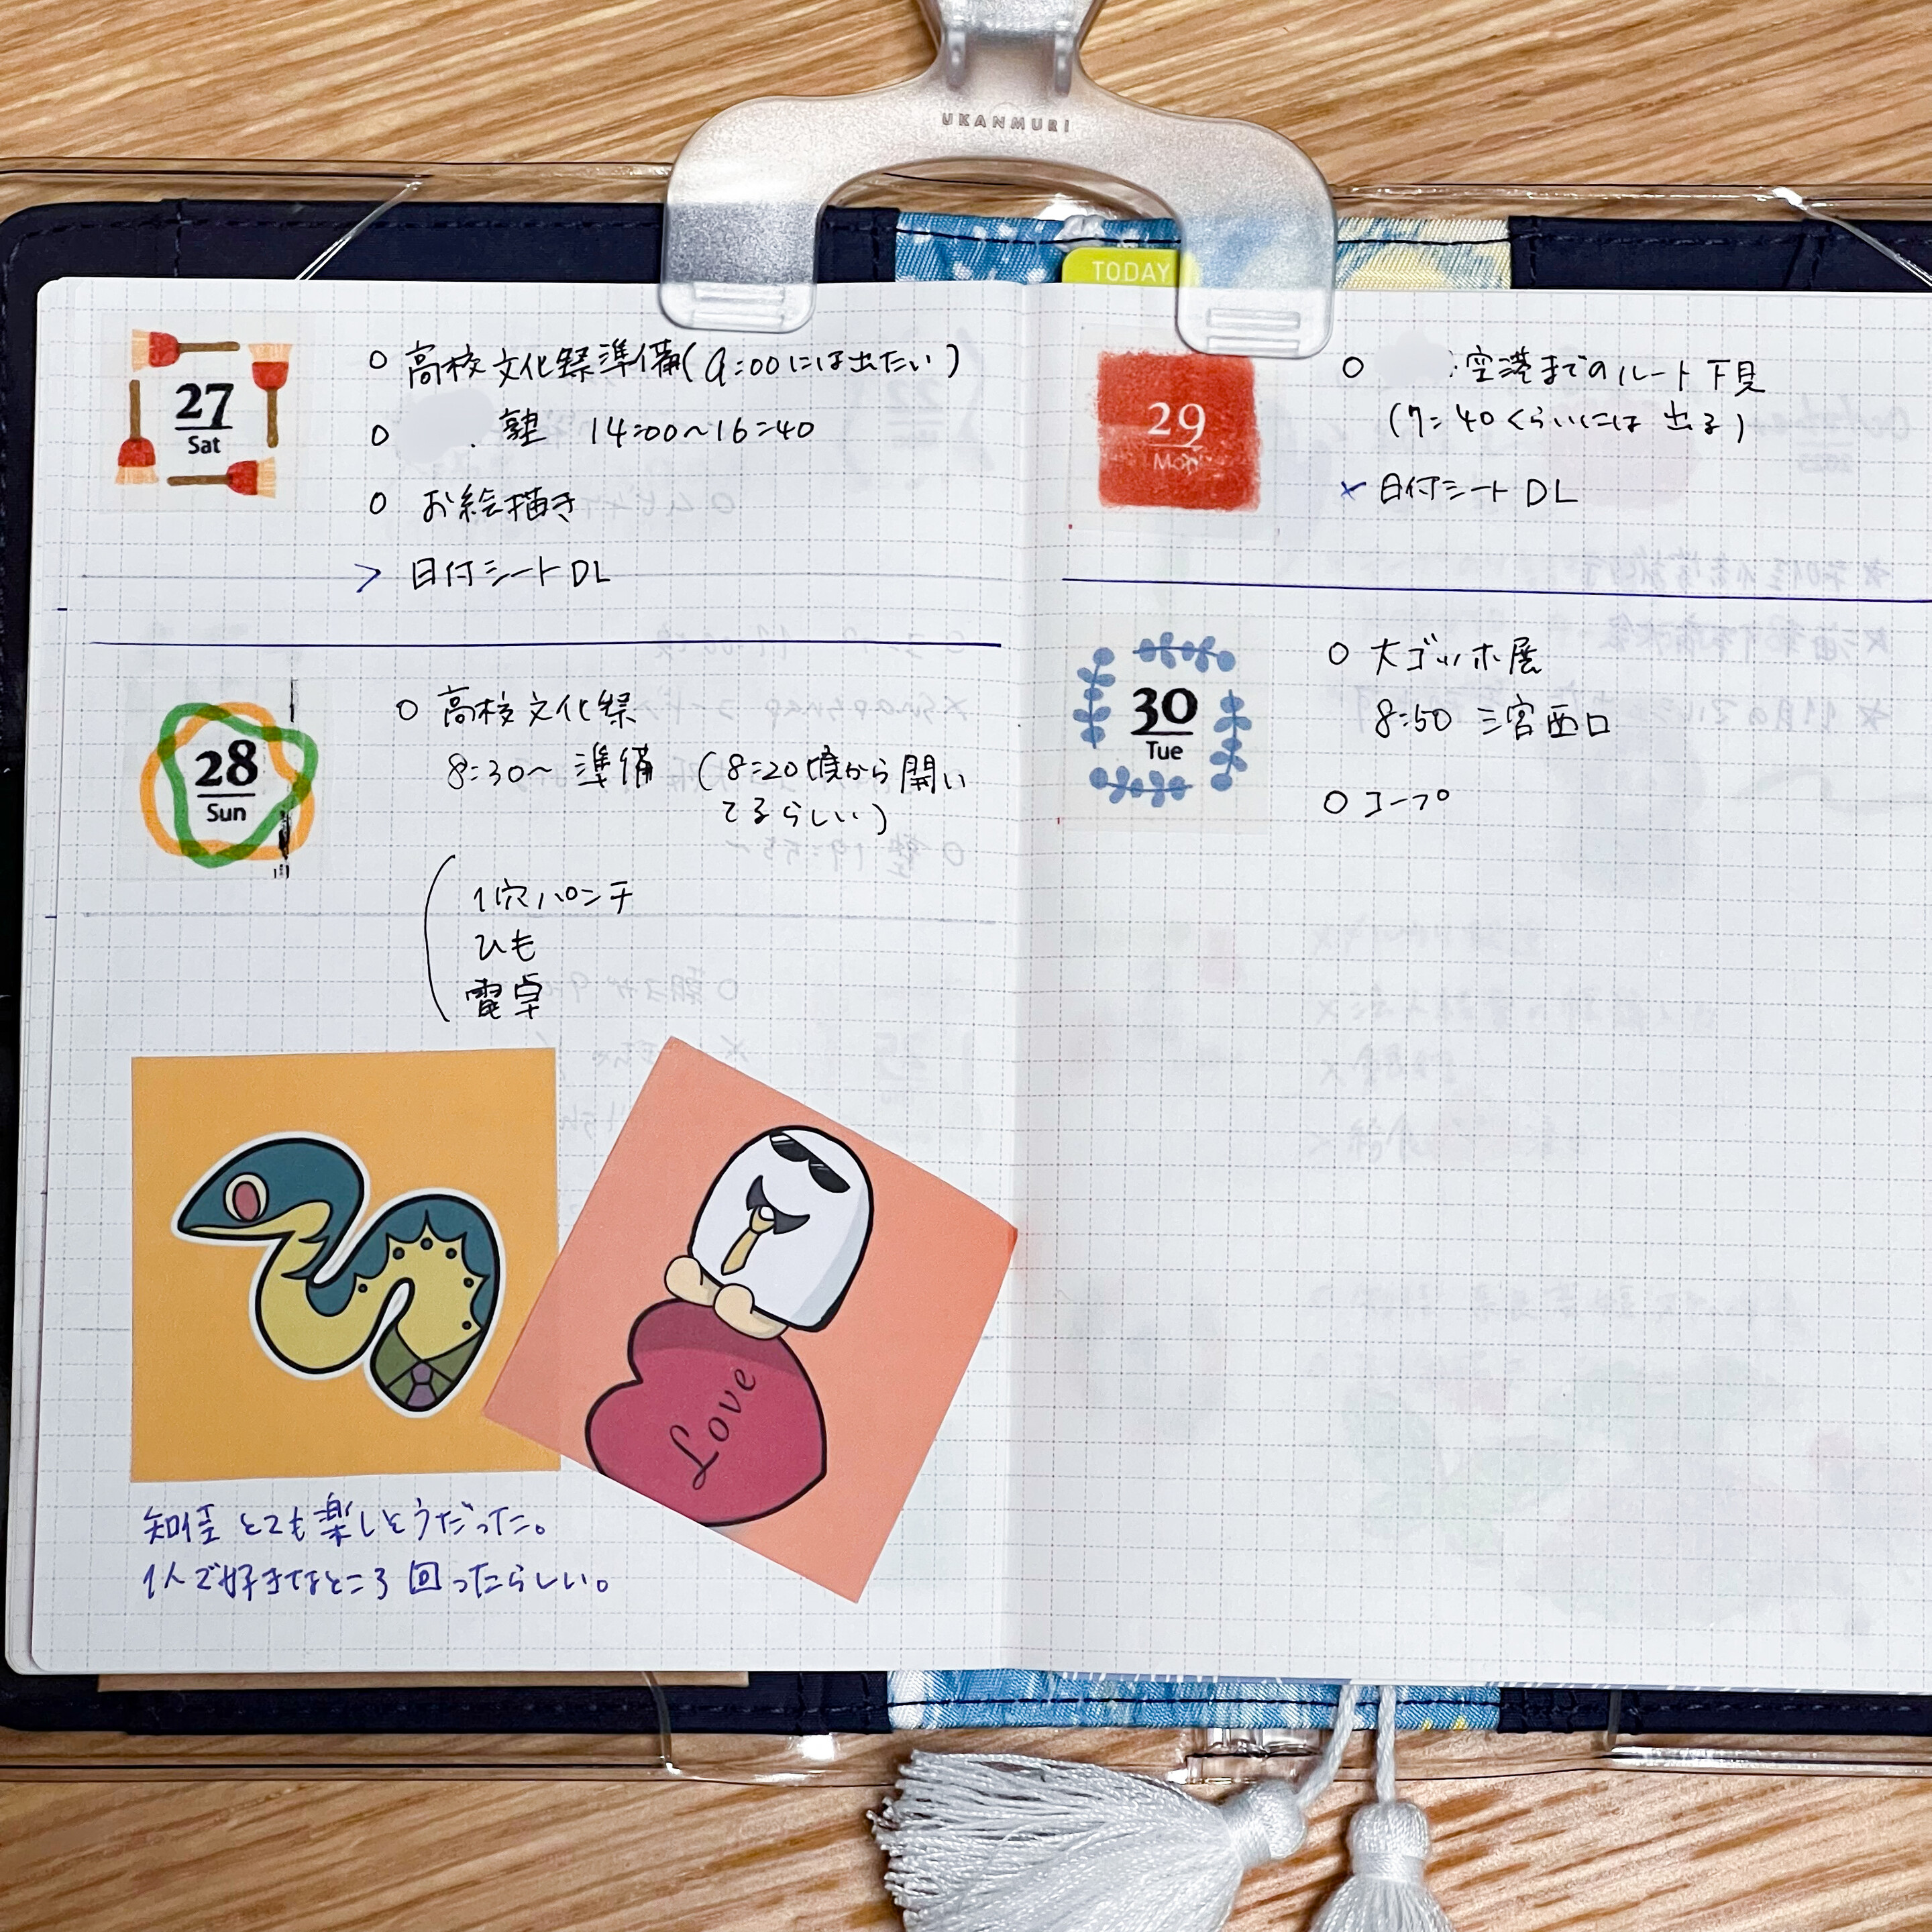 UKANMURI
TODAY
27
Sat
○ 高校文化祭準備(9:00には出たい)
○ 塾 14:00～16:40
○ お絵描き
> 日付シートDL
28
Sun
○ 高校文化祭
8:30～ 準備 (8:20頃から開い
てるらしい)
1穴パンチ
ひも
電卓
Love
知佳 とても楽しそうだった。
1人で好きなところ回ったらしい。
29
Mon
○ 空港までのルート下見
(7:40くらいには出る)
× 日付シートDL
30
Tue
○ 大ゴッホ展
8:50 三宮西口
○ コープ